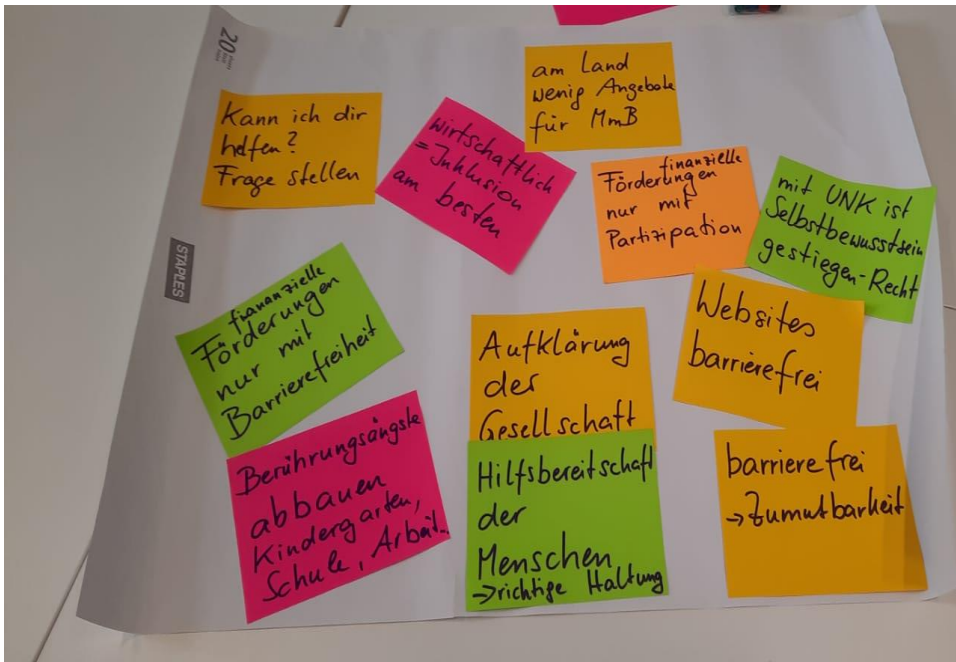 20
STAPLES
Kann ich dir
helfen?
Frage stellen
wirtschaftlich
= Inklusion
am besten
am Land
wenig Angebote
für MmB
finanzielle
Förderungen
nur mit
Partizipation
mit UNK ist
Selbstbewusstsein
gestiegen - Recht
finanzielle
Förderungen
nur mit
Barrierefreiheit
Aufklärung
der
Gesellschaft
Websites
barrierefrei
Berührungsängste
abbauen
Kindergarten,
Schule, Arbeit..
Hilfsbereitschaft
der
Menschen
→ richtige Haltung
barrierefrei
→ Zumutbarkeit